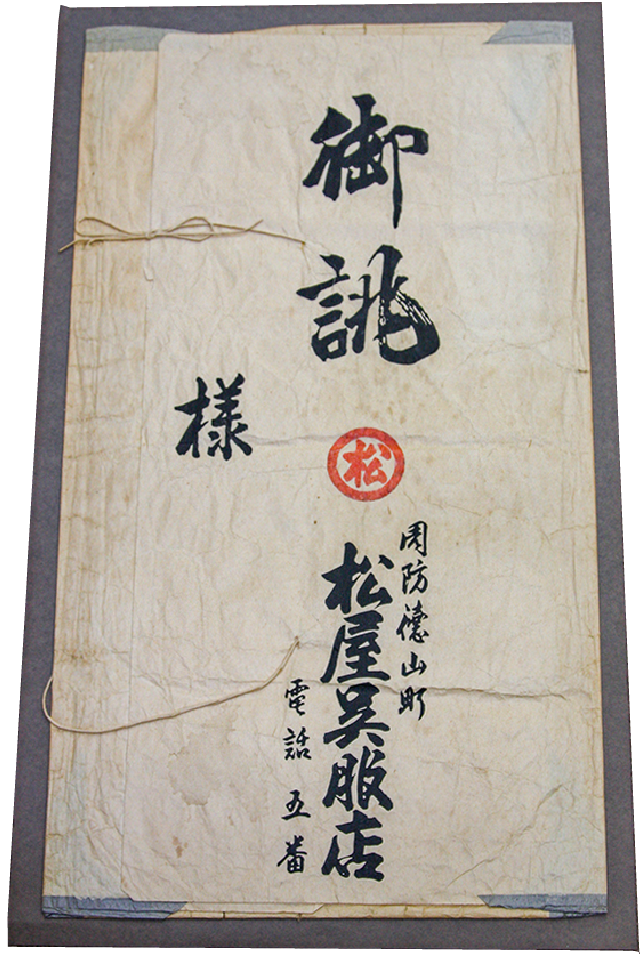 御誂
様
松
周防德山町
松屋呉服店
電話五番